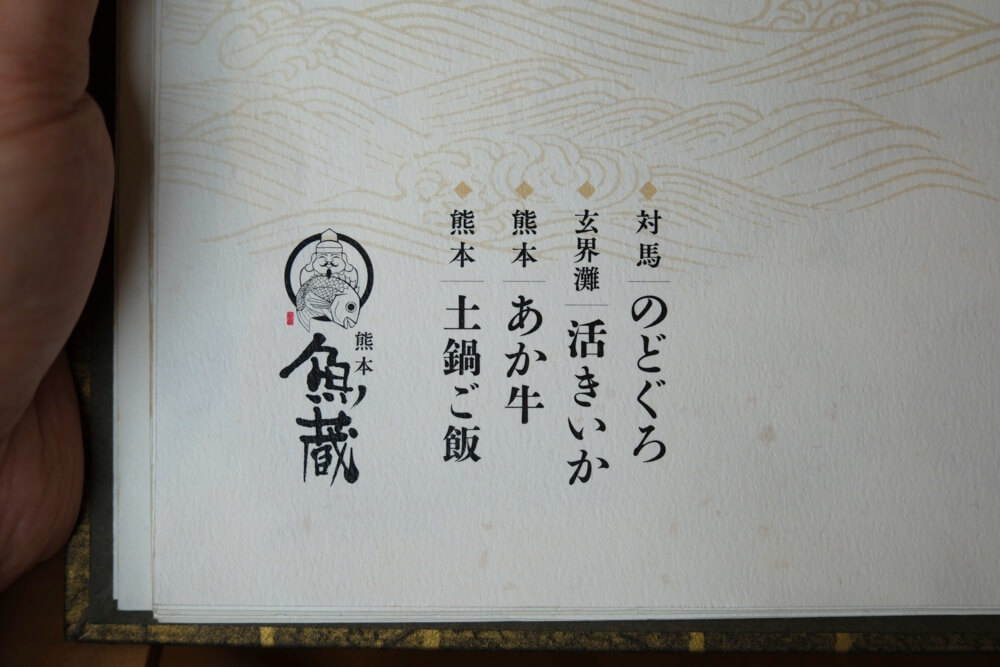 対馬 のどぐろ
玄界灘 活きいか
熊本 あか牛
熊本 土鍋ご飯
熊本
魚蔵